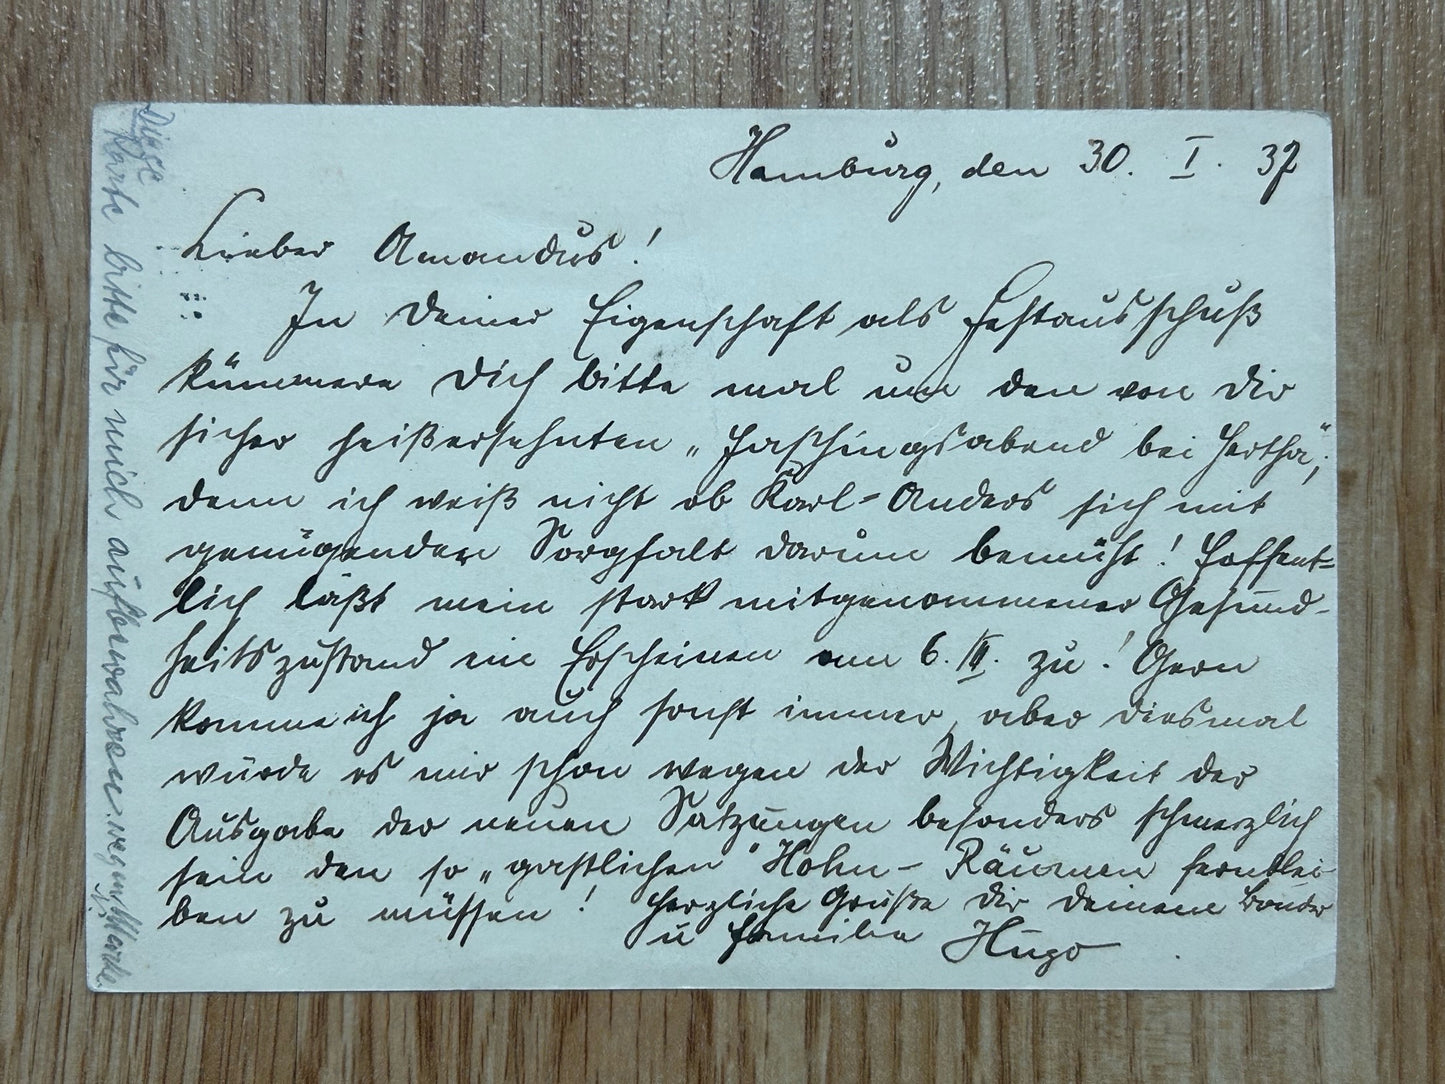 Hamburg, den 30. I. 37
Lieber Amandus!
In Deiner Eigenschaft als Festausschuß
kümmere Dich bitte mal um den von Dir
sicher heißersehnten „Faschingsabend bei Hertha“,
denn ich weiß nicht ob Karl-Anders sich mit
genügender Sorgfalt darum bemüht! Hoffent=
lich läßt mein stark mitgenommener Gesund-
heitszustand ein Erscheinen am 6. II. zu! Gern
komme ich ja auch sonst immer, aber diesmal
würde es mir schon wegen der Wichtigkeit der
Ausgabe der neuen Satzungen besonders schmerzlich
sein den so „gastlichen“ Hohn-Räumen fernblei-
ben zu müssen! Herzliche Grüße Dir Deinem Bruder
u Familie Hugo
Diese
Karte bitte für mich aufbewahren wegen Marke.